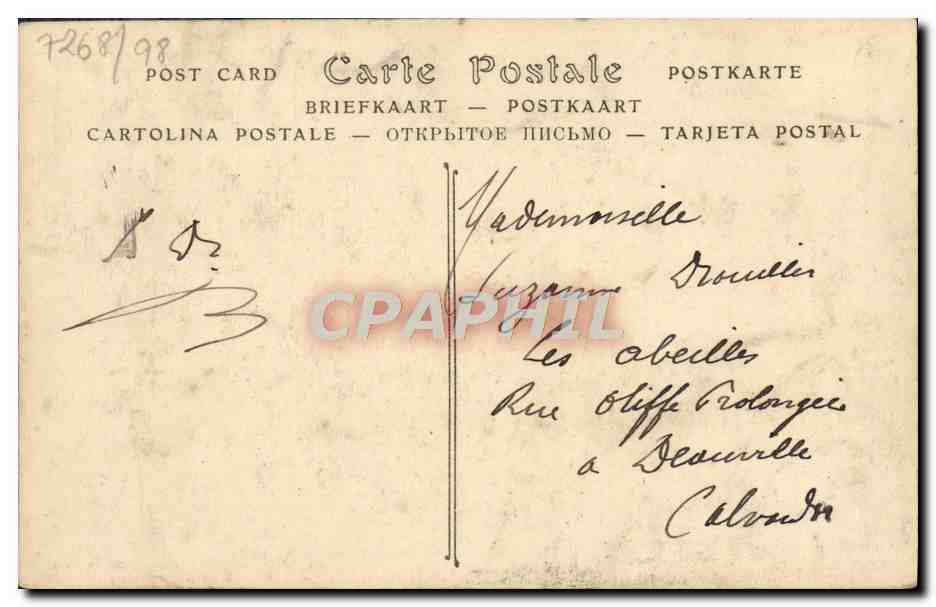 7268/98
POST CARD Carte Postale POSTKARTE
BRIEFKAART — POSTKAART
CARTOLINA POSTALE — ОТКРЫТОЕ ПИСЬМО — TARJETA POSTAL
Mademoiselle
Suzanne Drouilles
Les abeilles
Rue Oliffe Prolongée
a Deauville
Calvados
CPAPHIL